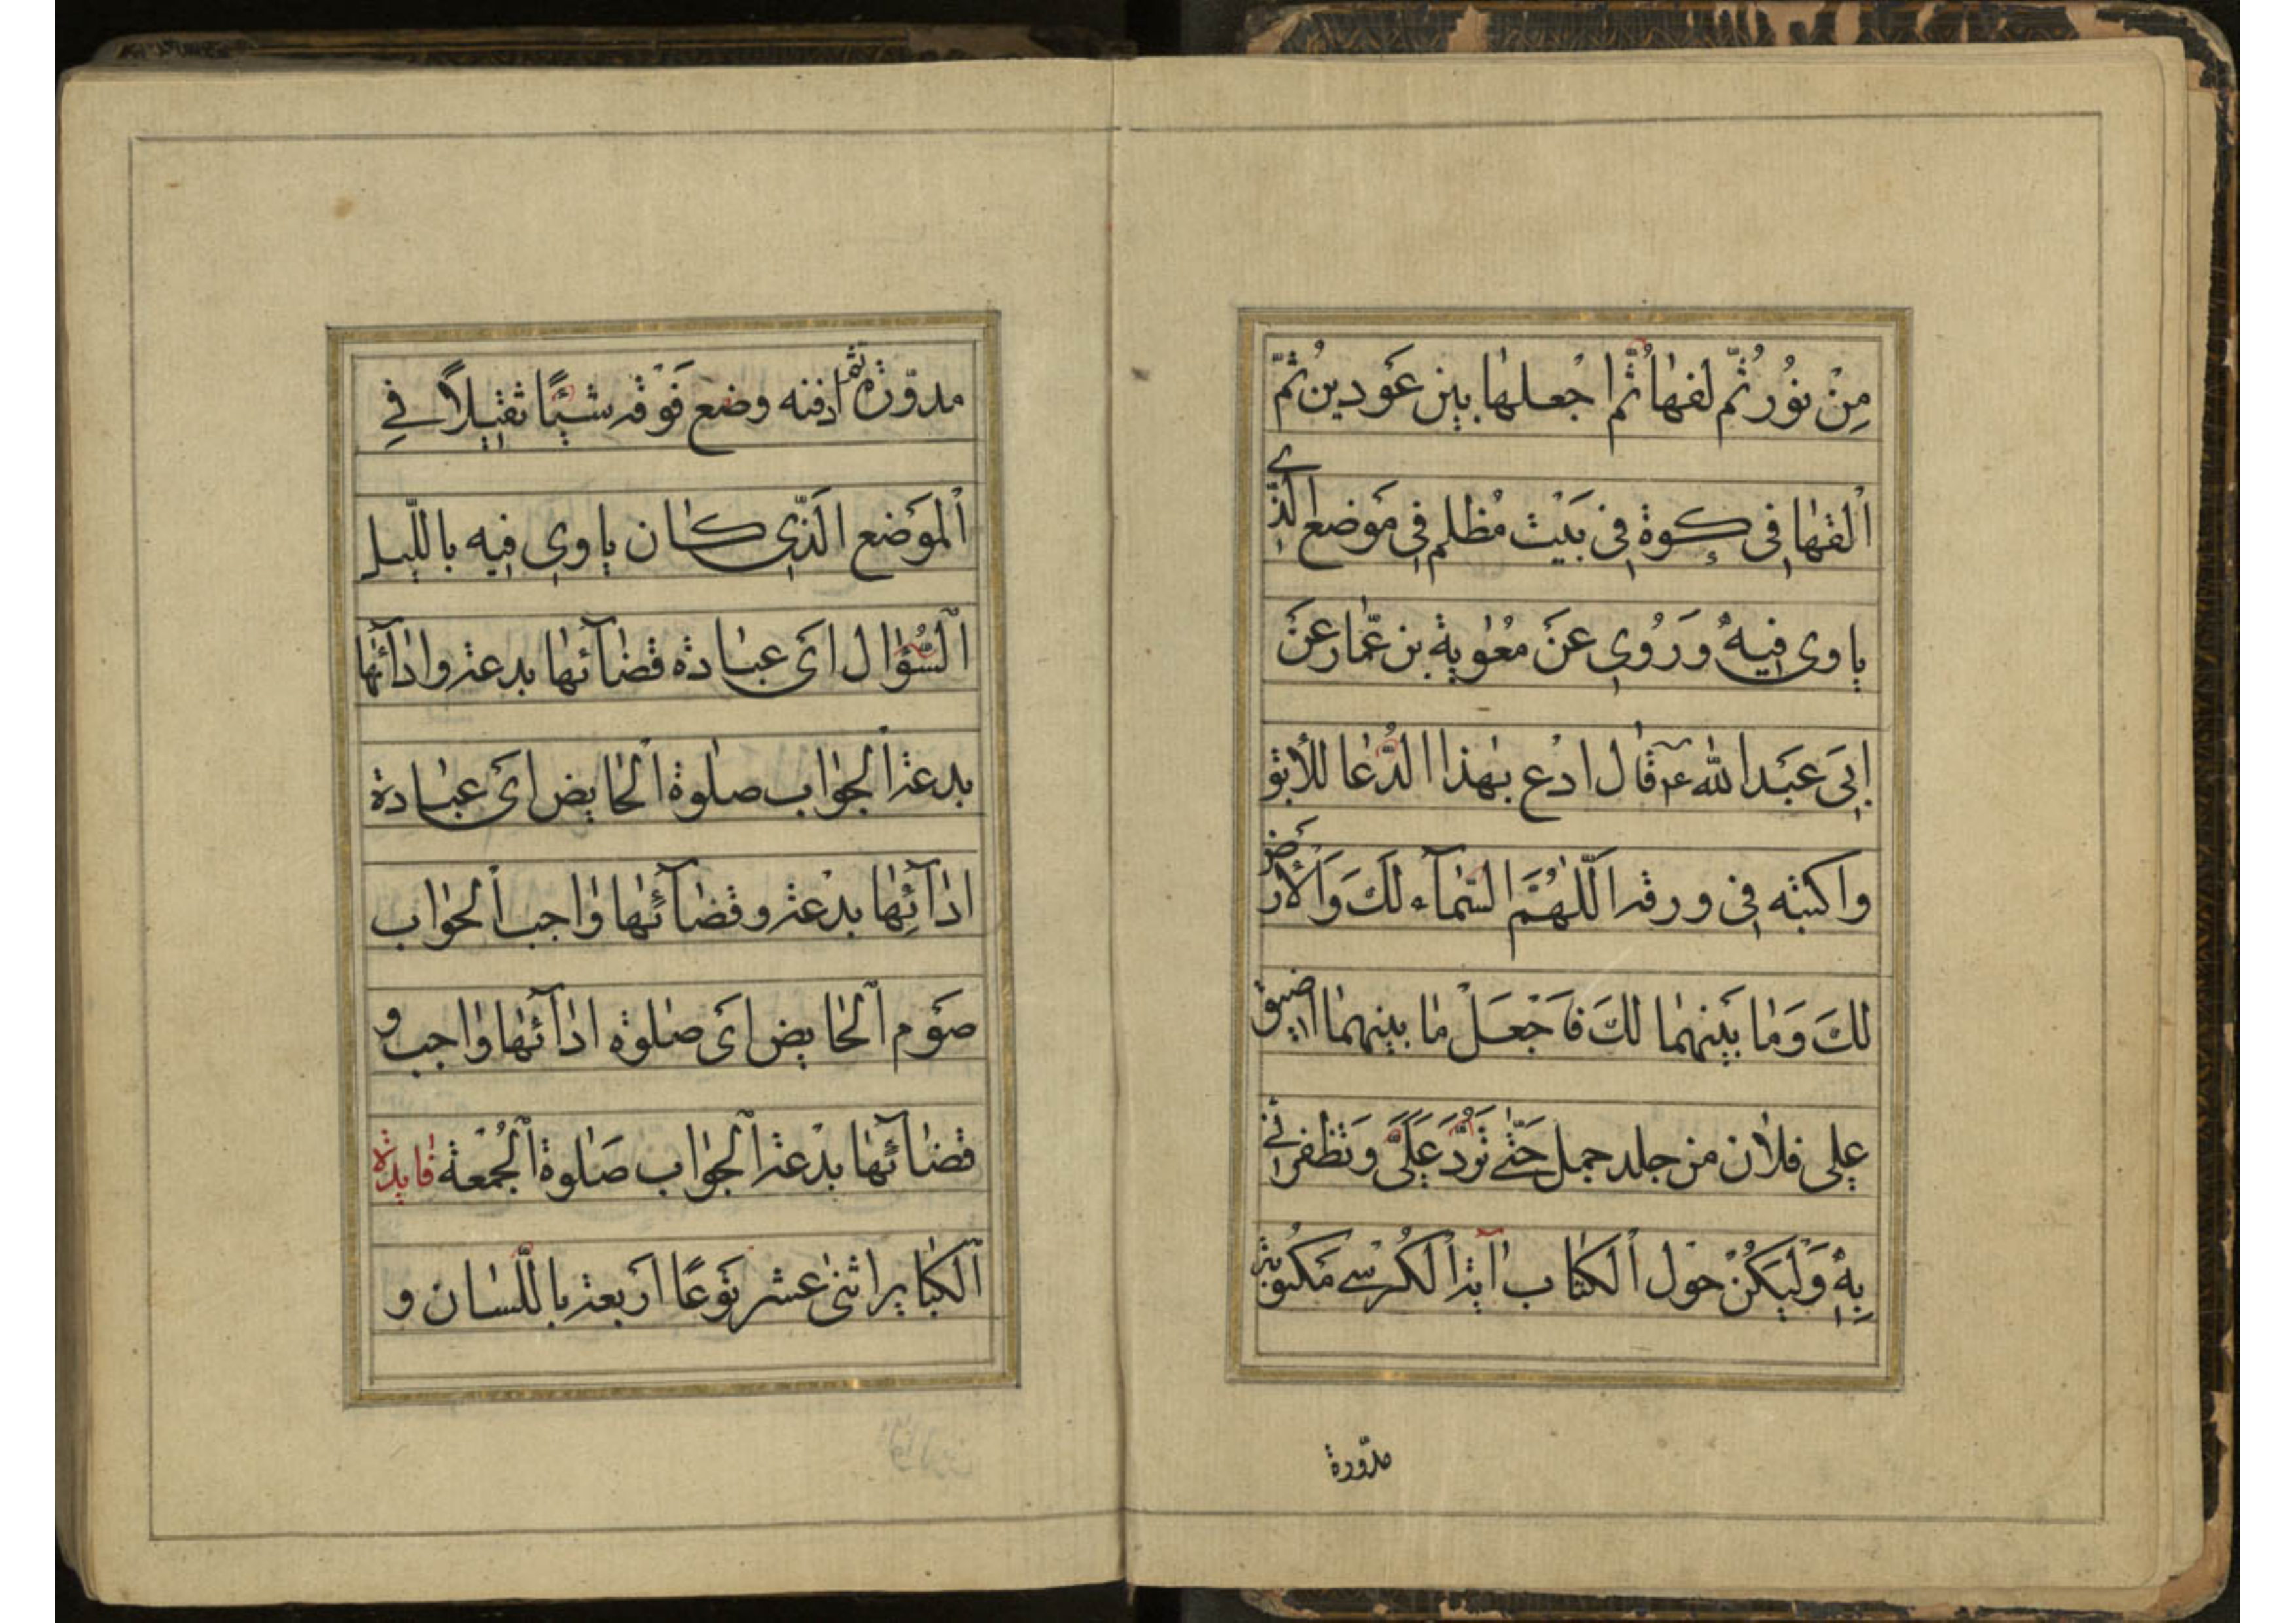 مِنْ نُورُ ثُمّ لفهٰا ثُمّ اجْعلهٰا بين عَودين ثمّ
اَلقهٰا فى كوة فى بَيْت مُظلم فى مَوضع الّذى
ياوى فيهِ وَ رَوُى عَنَ مُعٰوية بن عمّار عَن
ابى عَبَد الله ع قٰال ادْع بهٰذا الدُّعٰا للأبق
واكتبه فى ورقة اَللّٰهُمَّ السّمٰآء لَكَ وَالأرَض
لَكَ وَمٰا بَينهمٰا لَكَ فَاجْعَلْ مٰا بينهمٰا اضيق
على فلان من جلد جمل حَتّٰى تَرُدَّ عَلَىَّ وَتظفرنى
بِهِ وَلْيَكُنْ حَوْل اَلكتٰاب اٰية الكُرسْى مَكتوبة
مدّورة
مدّورة ثمّ ادفنه وضع فَوْقه شيئًا ثقيلاً فى
اَلموَضع الَذّى كٰان ياوى فيه باللّيل
اَلسُّؤٰال اىَ عبٰادة قضٰآئهٰا بدعة وادٰآئهٰا
بدعة اَلجوٰاب صلٰوة اَلحٰايض اىَ عبٰادة
ادٰآئِهٰا بدْعة وقضٰآئهٰا وٰاجب اَلجوٰاب
صَوم اَلحٰايض اىَ صلٰوة ادٰآئهٰا وٰاجب و
قضٰآئهٰا بدْعة اَلجوٰاب صَلٰوة اَلجُمْعة فٰايدة
اَلكبٰاير اثنىٰ عشر نَوعًا ارَبعة باللّسٰان و